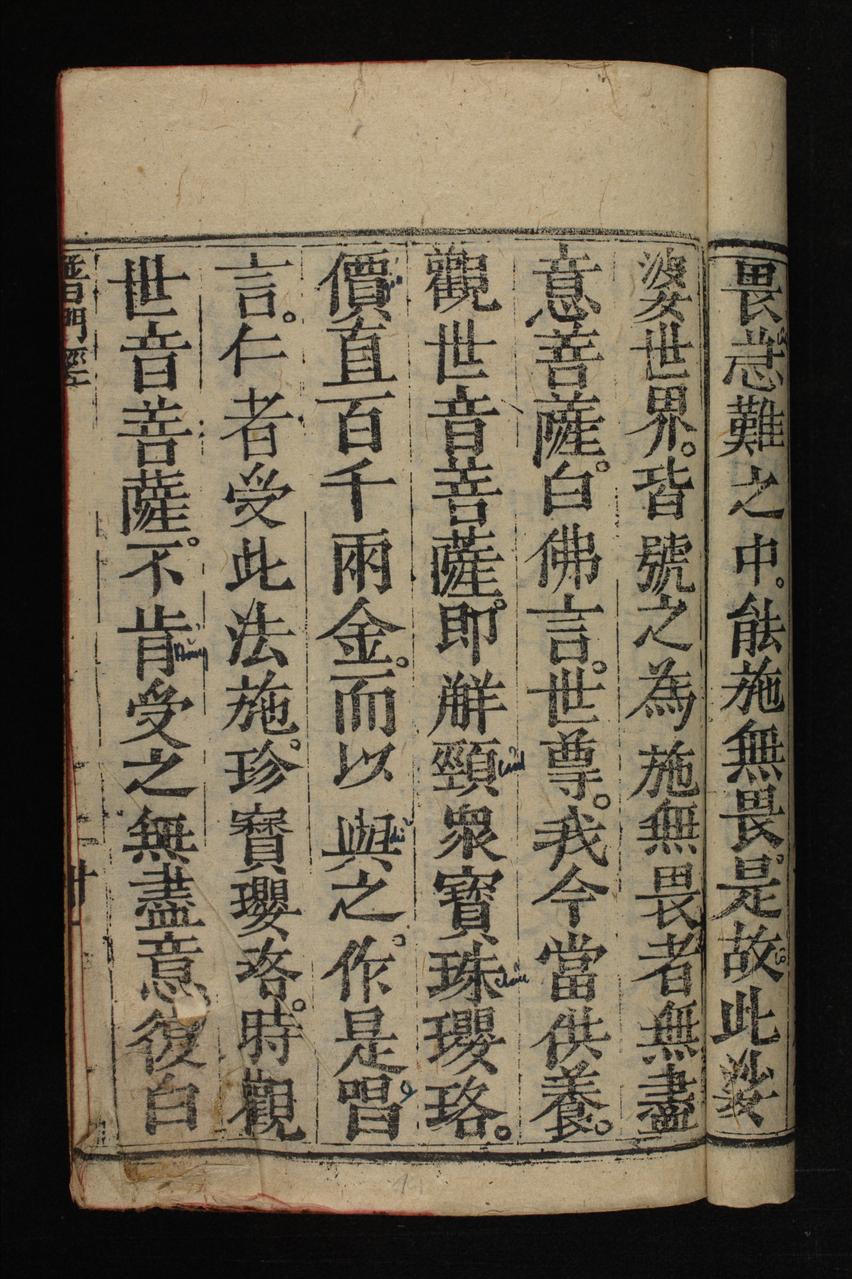 畏急難之中。能施無畏。是故。此娑
婆世界。皆號之為施無畏者無盡
意菩薩。白佛言。世尊。我今當供養。
觀世音菩薩。即觧頸衆寳珠瓔珞。
價直百千兩金。而以與之。作是唱
言。仁者受此法施。珍寳瓔珞。時觀
世音菩薩。不肯受之無盡意復白
普門經